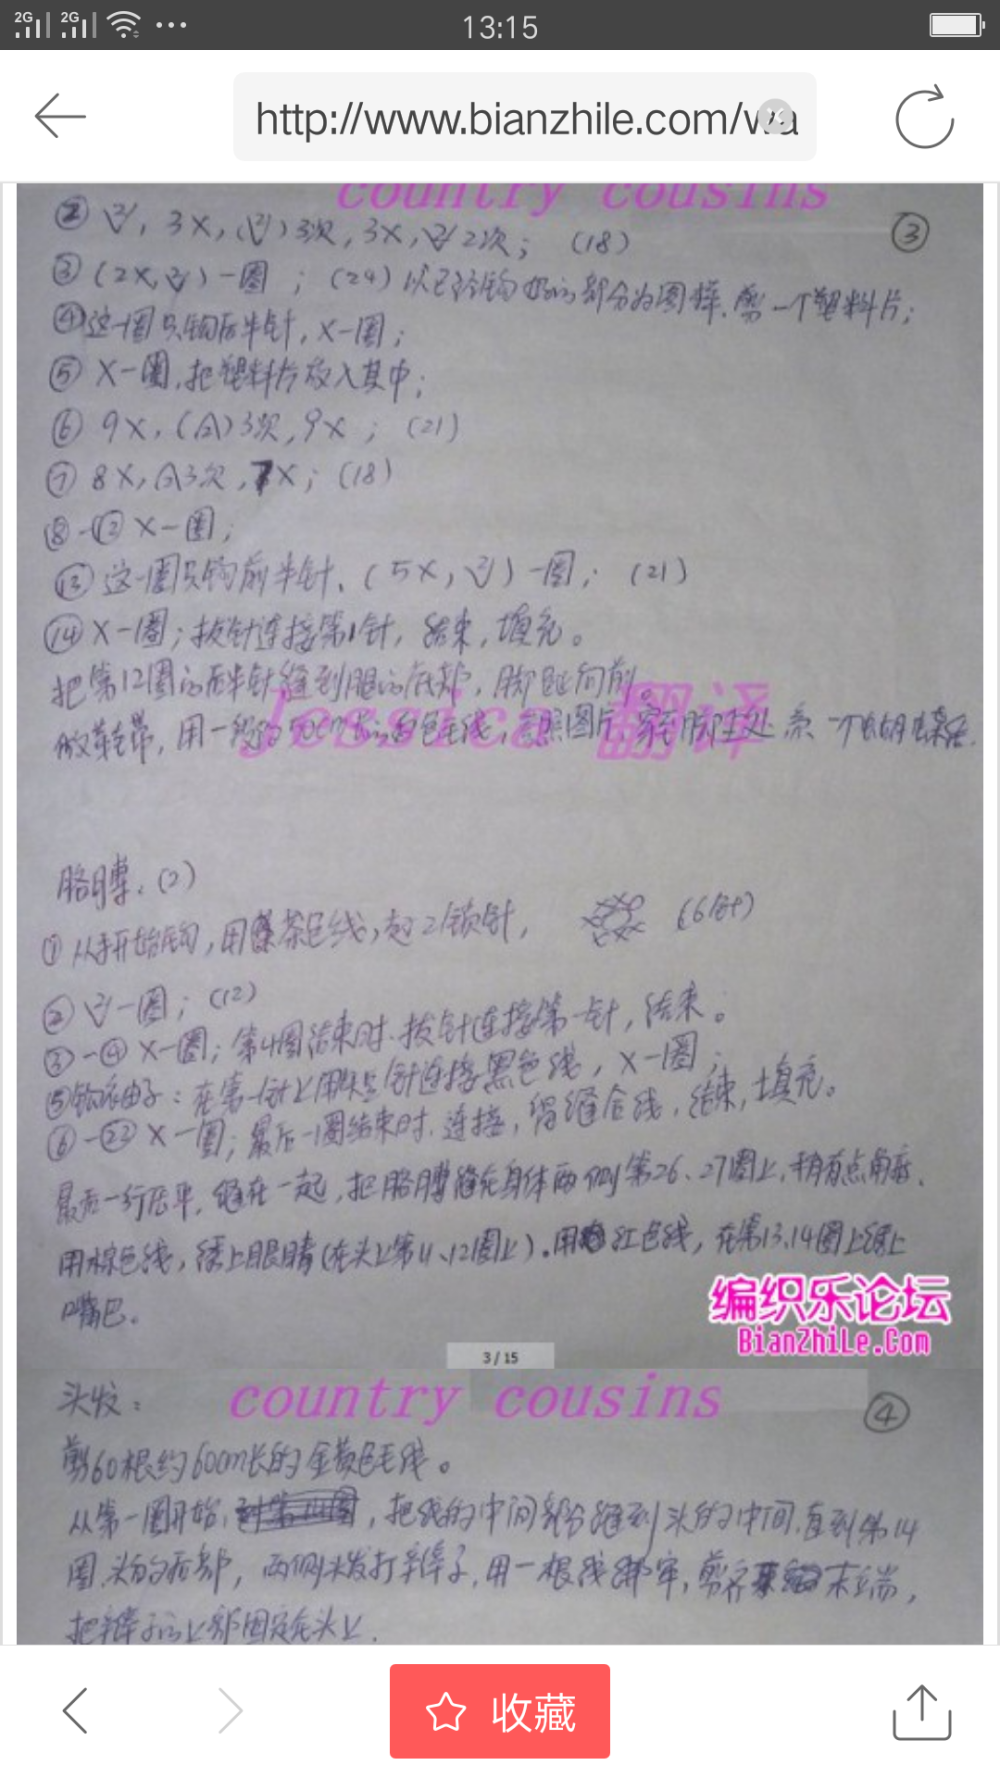 2G 2G 13:15
http://www.bianzhile.com/wa
country cousins
② V, 3X, (V) 3次, 3X, V 2次; (18) ③
③ (2X, V) 一圈 ; (24) 以已经钩好的部分为图样, 剪一个塑料片;
④ 这一圈只钩后半针, X一圈;
⑤ X一圈, 把塑料片放入其中;
⑥ 9X, (A) 3次, 9X ; (21)
⑦ 8X, A3次, 7X; (18)
⑧-⑫ X一圈;
⑬ 这一圈只钩前半针, (5X, V) 一圈; (21)
⑭ X一圈; 拔针连接第1针, 结束, 填充。
把第12圈的后半针缝到腿的底部, 脚趾向前。
Jessica 翻译
做鞋带, 用一段约50cm长的白色毛线, 参照图片, 穿到脚上处, 系一个蝴蝶结.
胳膊. (2)
① 从手开始钩, 用茶色线, 起2锁针, (6针)
② V一圈; (12)
③-④ X一圈; 第4圈结束时, 拔针连接第一针, 结束。
⑤ 钩袖子: 在第一针上用短针连接黑色线, X一圈;
⑥-㉒ X一圈; 最后一圈结束时, 连接, 留缝合线, 结束, 填充。
最后一行压平, 缝在一起, 把胳膊缝在身体两侧第26、27圈上, 稍有点角度.
用棕色线, 绣上眼睛(在头上第11、12圈上). 用红色线, 在第13、14圈上绣上
嘴巴.
编织乐论坛
BianZhiLe.Com
3/15
country cousins
头发: ④
剪60根约60cm长的金黄色毛线。
从第一圈开始, 把线的中间部分缝到头的中间, 直到第14
圈, 头的后部, 两侧头发打辫子, 用一根线绑牢, 剪齐末端,
把辫子的上部固定在头上.
收藏